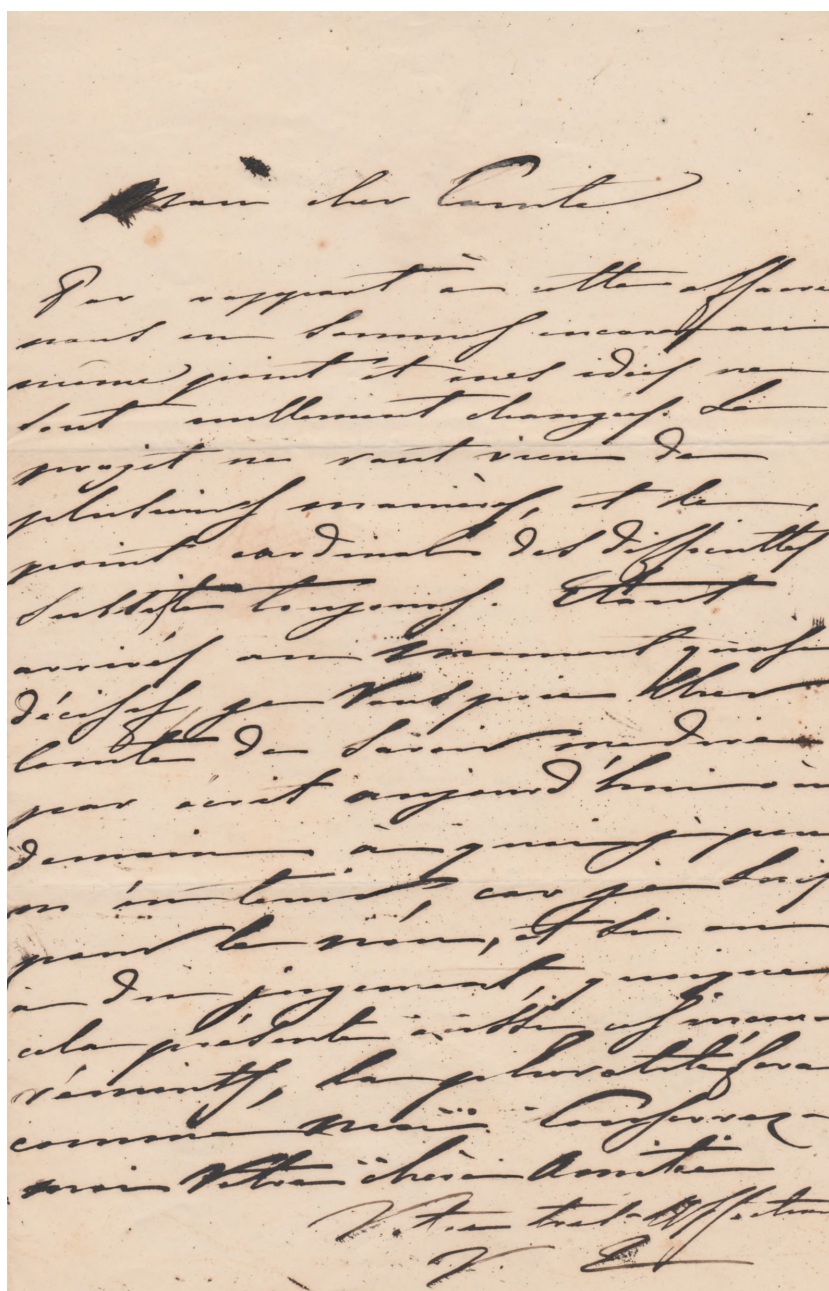 Mon cher Comte
Par rapport à cette affaire
nous en sommes encore au
même point et mes idées ne
sont nullement changées. Le
projet ne vaut rien de
plusieurs manières, et le
point cardinal des difficultés
subsiste toujours. Etant
arrivés au moment quasi
décisif je Vous prie Cher
Comte de savoir me dire
par écrit aujourd'hui à
demain à quoi je peu
m'en tenir, car je suis
pour le non, et si on
a du jugement, quoique
cela présente aussi ses incon-
vénients, la pluralité fera
comme moi. Conservez-
moi Votre chère Amitié
Votre très Affection
V. E